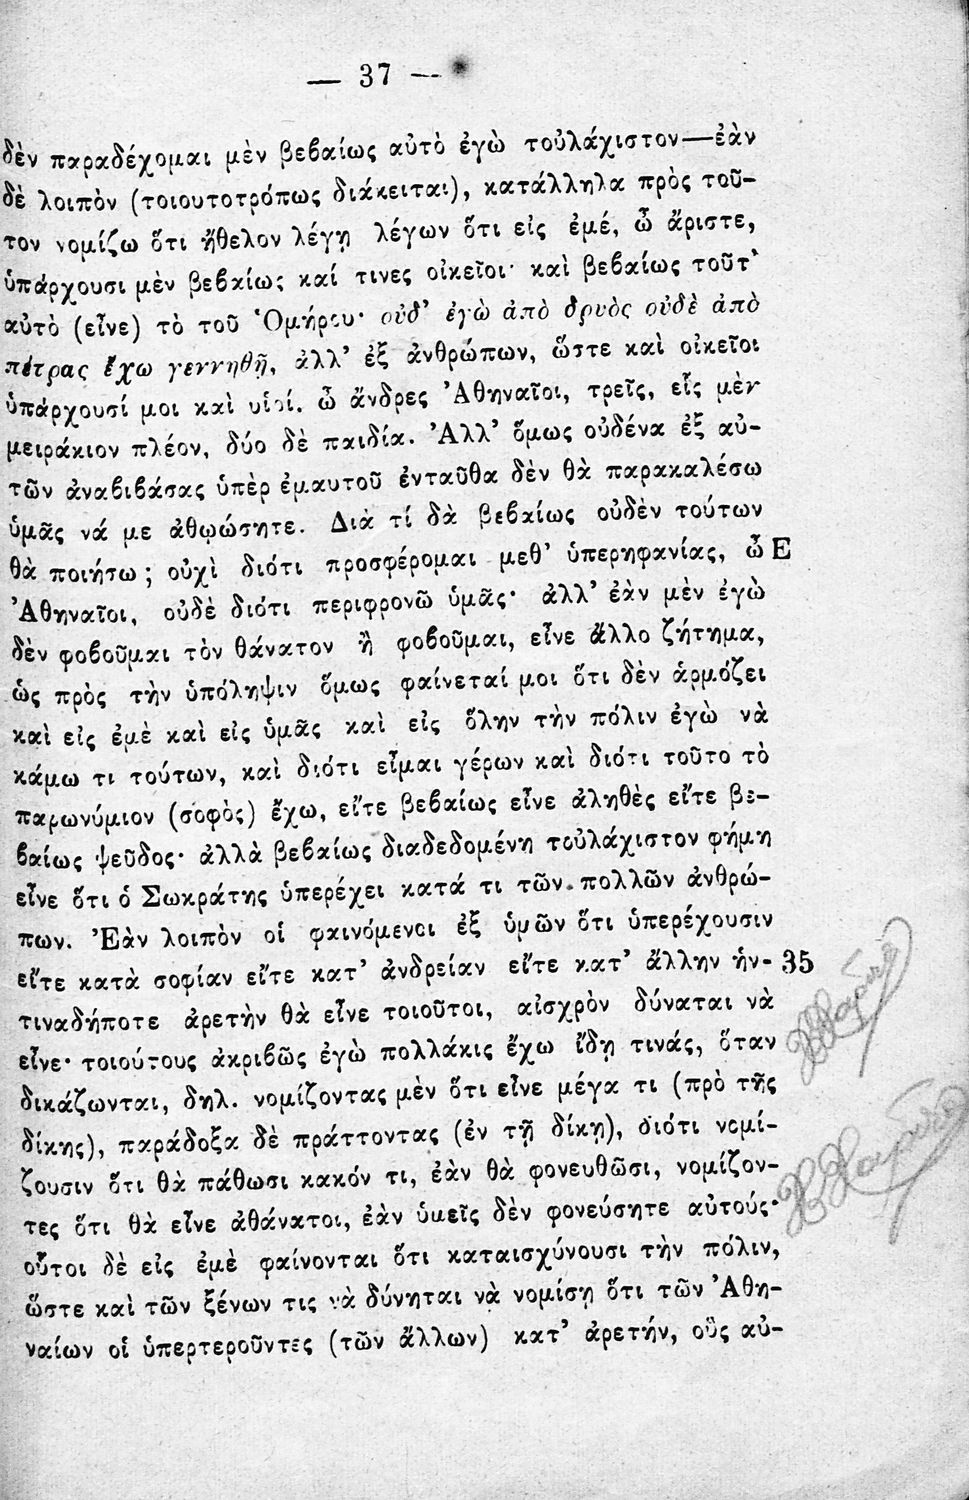 — 37 —
δὲν παραδέχομαι μὲν βεβαίως αὐτὸ ἐγὼ τοὐλάχιστον—ἐὰν
δὲ λοιπὸν (τοιουτοτρόπως διάκειται), κατάλληλα πρὸς τοῦ-
τον νομίζω ὅτι ἤθελον λέγῃ λέγων ὅτι εἰς ἐμέ, ὦ ἄριστε,
ὑπάρχουσι μὲν βεβαίως καί τινες οἰκεῖοι· καὶ βεβαίως τοῦτ'
αὐτὸ (εἶνε) τὸ τοῦ Ὁμήρου· οὐδ' ἐγὼ ἀπὸ δρυὸς οὐδὲ ἀπὸ
πέτρας ἔχω γεννηθῇ, ἀλλ' ἐξ ἀνθρώπων, ὥστε καὶ οἰκεῖοι
ὑπάρχουσί μοι καὶ υἱοί. ὦ ἄνδρες Ἀθηναῖοι, τρεῖς, εἷς μὲν
μειράκιον πλέον, δύο δὲ παιδία. Ἀλλ' ὅμως οὐδένα ἐξ αὐ-
τῶν ἀναβιβάσας ὑπὲρ ἐμαυτοῦ ἐνταῦθα δὲν θὰ παρακαλέσω
ὑμᾶς νά με ἀθῳώσητε. Διὰ τί δὰ βεβαίως οὐδὲν τούτων
θὰ ποιήσω; οὐχὶ διότι προσφέρομαι μεθ' ὑπερηφανίας, ὦ Ε
Ἀθηναῖοι, οὐδὲ διότι περιφρονῶ ὑμᾶς· ἀλλ' ἐὰν μὲν ἐγὼ
δὲν φοβοῦμαι τὸν θάνατον ἢ φοβοῦμαι, εἶνε ἄλλο ζήτημα,
ὡς πρὸς τὴν ὑπόληψιν ὅμως φαίνεταί μοι ὅτι δὲν ἁρμόζει
καὶ εἰς ἐμὲ καὶ εἰς ὑμᾶς καὶ εἰς ὅλην τὴν πόλιν ἐγὼ νὰ
κάμω τι τούτων, καὶ διότι εἶμαι γέρων καὶ διότι τοῦτο τὸ
παρωνύμιον (σοφὸς) ἔχω, εἴτε βεβαίως εἶνε ἀληθὲς εἴτε βε-
βαίως ψεῦδος· ἀλλὰ βεβαίως διαδεδομένη τοὐλάχιστον φήμη
εἶνε ὅτι ὁ Σωκράτης ὑπερέχει κατά τι τῶν πολλῶν ἀνθρώ-
πων. Ἐὰν λοιπὸν οἱ φαινόμενοι ἐξ ὑμῶν ὅτι ὑπερέχουσιν
εἴτε κατὰ σοφίαν εἴτε κατ' ἀνδρείαν εἴτε κατ' ἄλλην ἡν- 35
τιναδήποτε ἀρετὴν θὰ εἶνε τοιοῦτοι, αἰσχρὸν δύναται νὰ
εἶνε· τοιούτους ἀκριβῶς ἐγὼ πολλάκις ἔχω ἴδῃ τινάς, ὅταν
δικάζωνται, δηλ. νομίζοντας μὲν ὅτι εἶνε μέγα τι (πρὸ τῆς
δίκης), παράδοξα δὲ πράττοντας (ἐν τῇ δίκῃ), διότι νομί-
ζουσιν ὅτι θὰ πάθωσι κακόν τι, ἐὰν θὰ φονευθῶσι, νομίζον-
τες ὅτι θὰ εἶνε ἀθάνατοι, ἐὰν ὑμεῖς δὲν φονεύσητε αὐτούς·
οὗτοι δὲ εἰς ἐμὲ φαίνονται ὅτι καταισχύνουσι τὴν πόλιν,
ὥστε καὶ τῶν ξένων τις νὰ δύνηται νὰ νομίσῃ ὅτι τῶν Ἀθη-
ναίων οἱ ὑπερτεροῦντες (τῶν ἄλλων) κατ' ἀρετήν, οὓς αὐ-